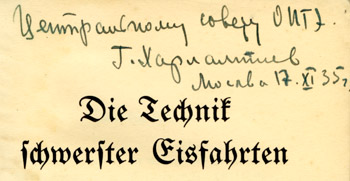 Центральному совету ОПТЭ.
Г. Харлампиев
Москва 17.XI 35 г.
Die Technik
schwerster Eisfahrten